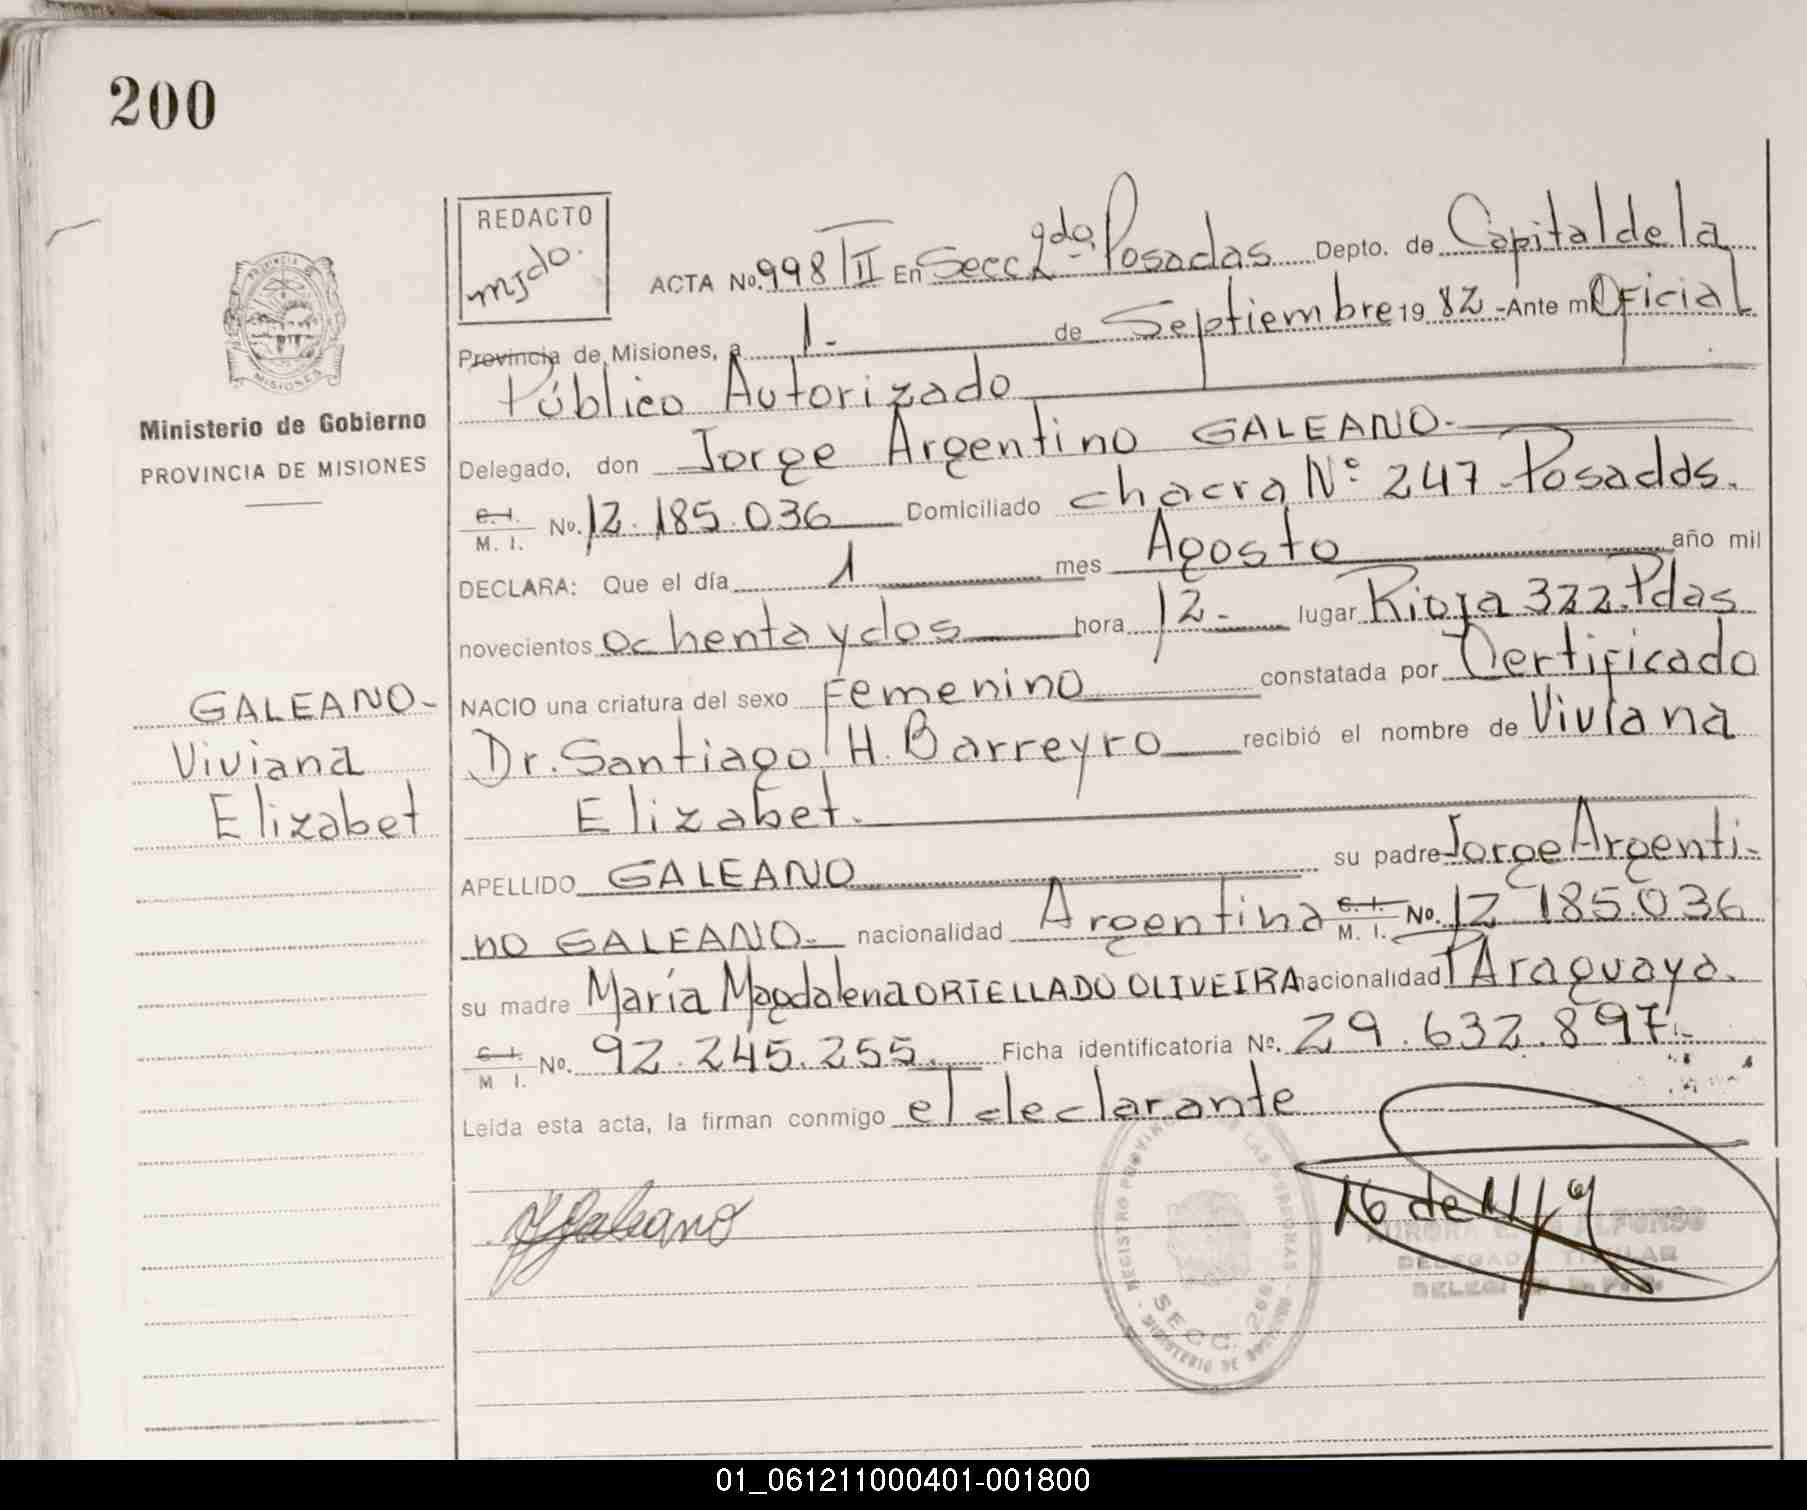 200
REDACTO
mjdo.
ACTA No. 998/II En Secc 2da. Posadas Depto. de Capital de la
Provincia de Misiones, a 1.- de Septiembre 1982 -Ante mi Oficial
Público Autorizado
Ministerio de Gobierno
PROVINCIA DE MISIONES
Delegado, don Jorge Argentino GALEANO.-
C. I. M. I. No. 12.185.036 Domiciliado chacra Nº 247 - Posadas.
DECLARA: Que el día 1 mes Agosto año mil
novecientos ochenta y dos hora 12.- lugar Rioja 322. Pdas
NACIO una criatura del sexo Femenino constatada por Certificado
Dr. Santiago H. Barreyro recibió el nombre de Viviana
Elizabet.
GALEANO-
Viviana
Elizabet
APELLIDO GALEANO su padre Jorge Argenti-
no GALEANO.- nacionalidad Argentina C. I. M. I. No. 12 185.036
su madre María Magdalena ORTELLADO OLIVEIRA nacionalidad PAraguaya.
C. I. M I. No. 92.245.255. Ficha identificatoria No. 29.632.897.-
Leida esta acta, la firman conmigo el declarante
JGaleano
REGISTRO PROVINC DE LAS PERSONAS
SECC. 2da
MINISTERIO DE GOBIERNO
AURORA ALFONSO
DELEGADO TITULAR
01_061211000401-001800